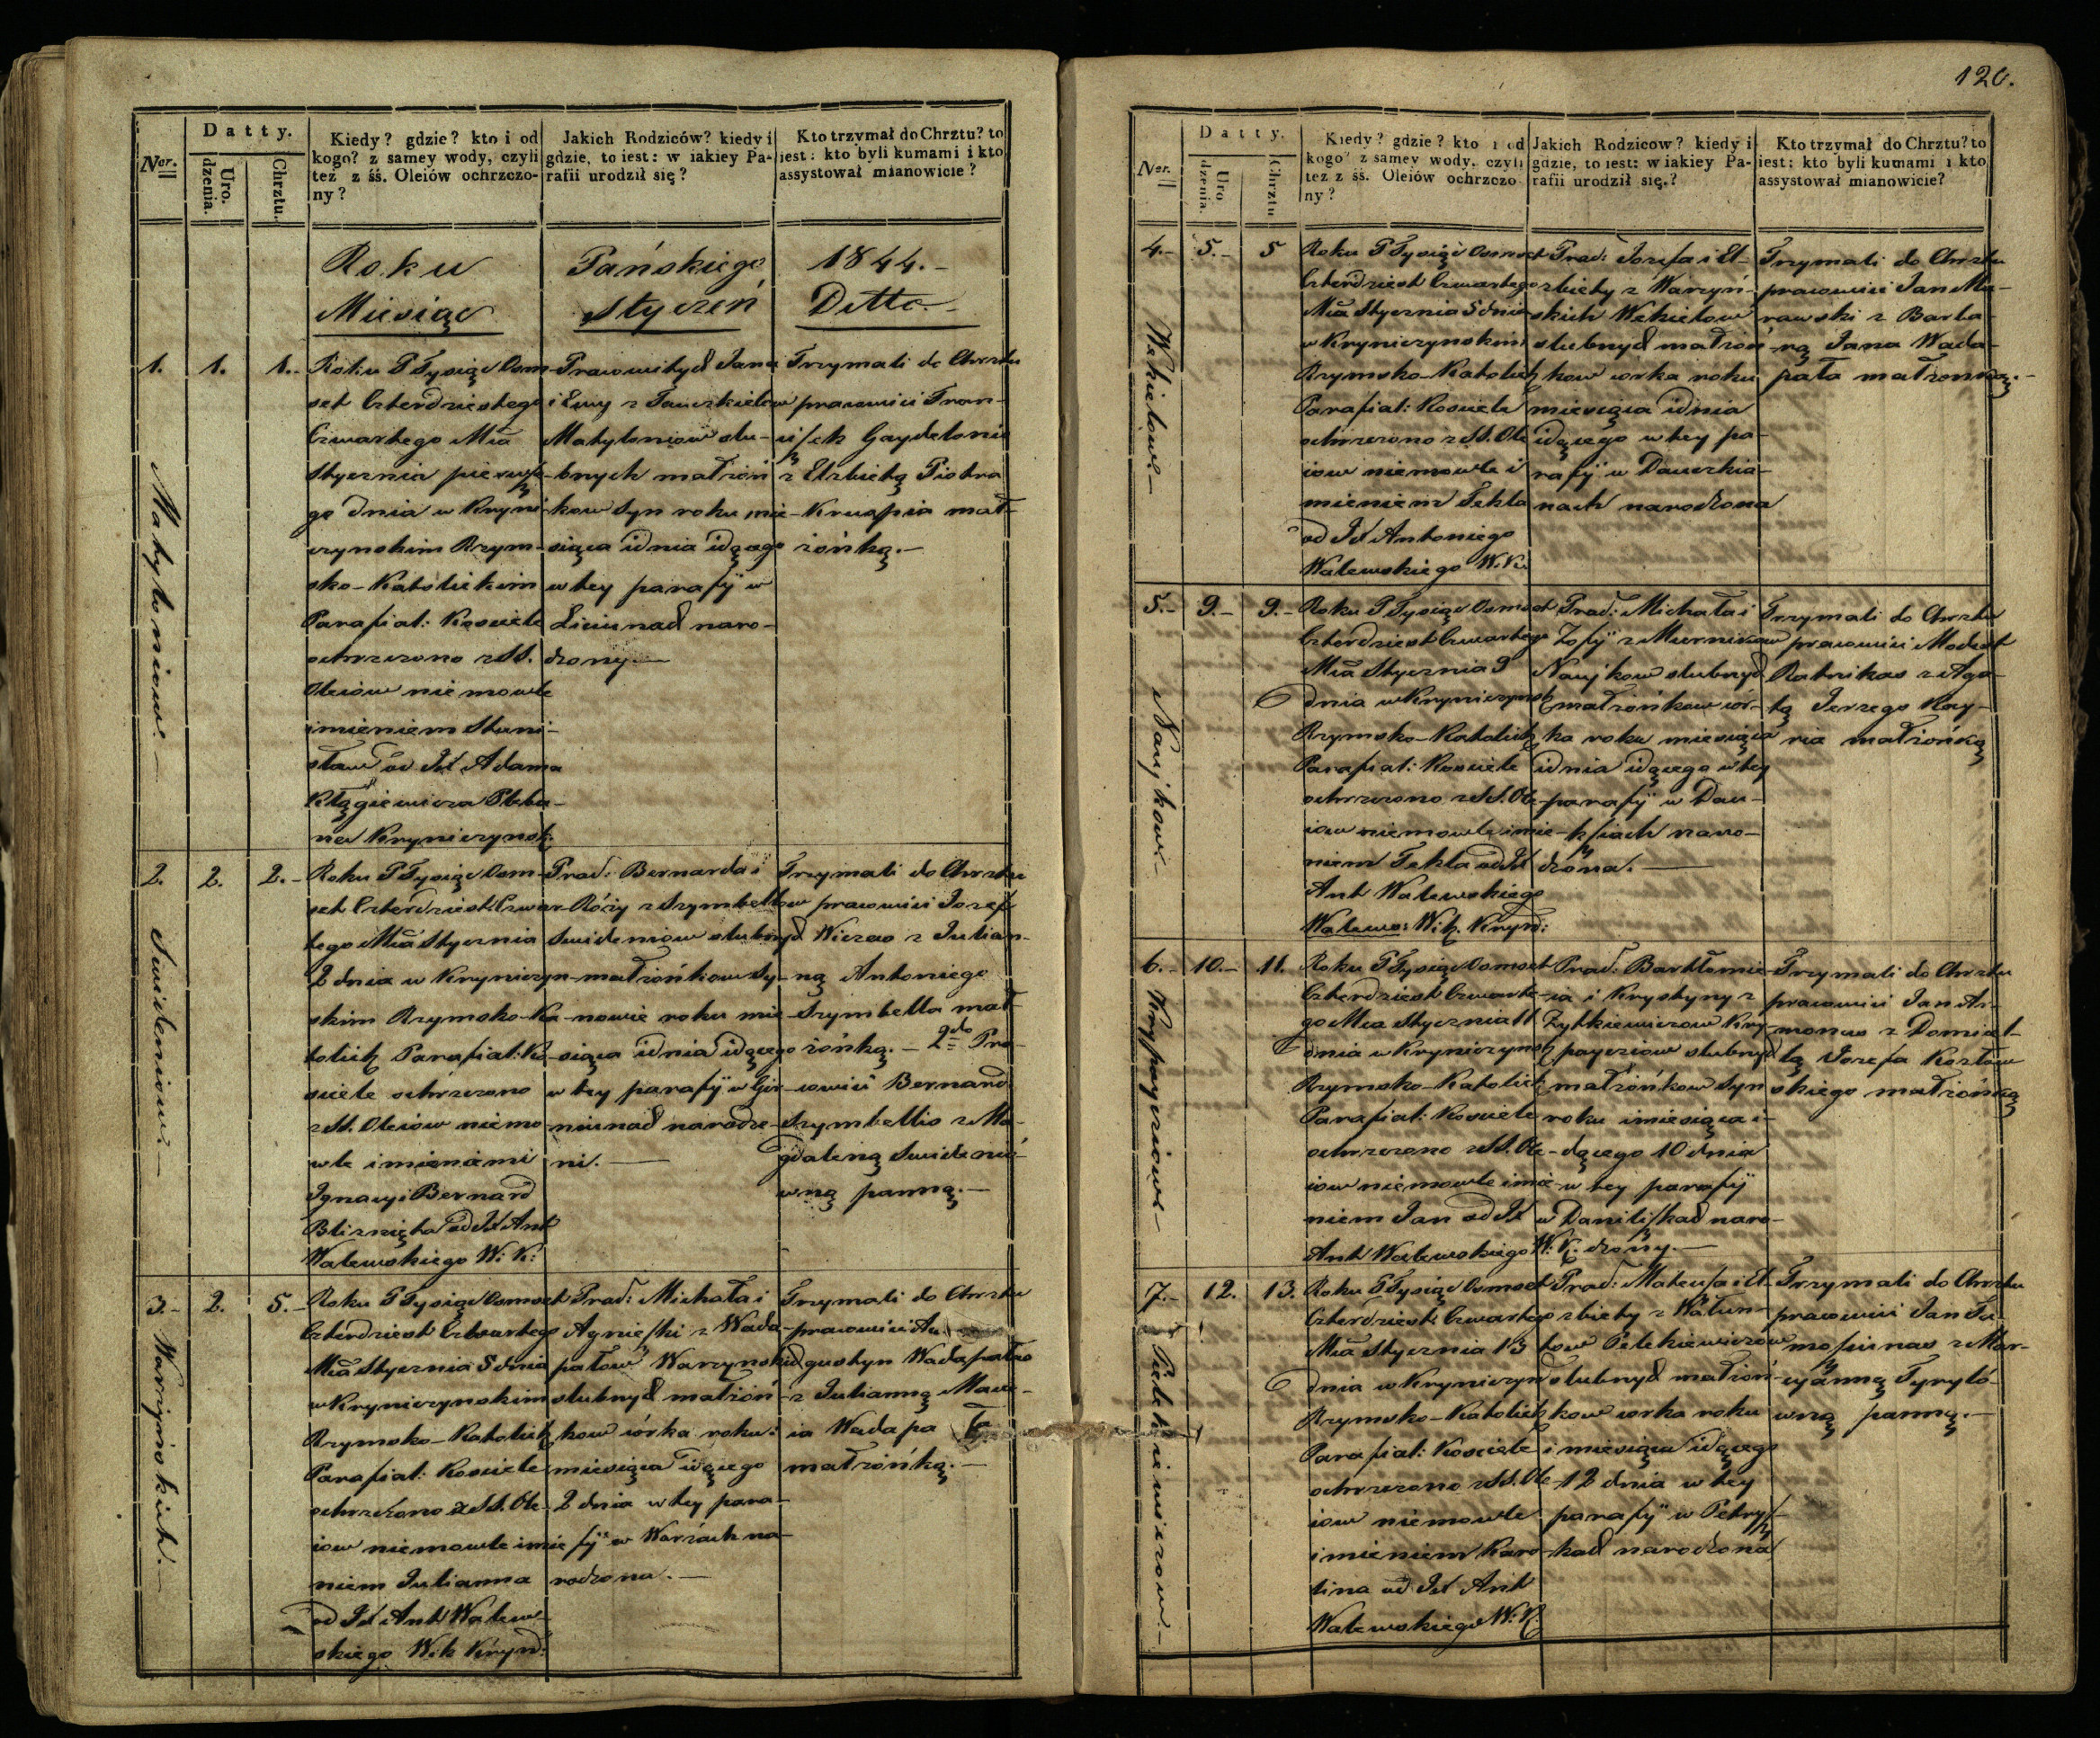 Nor.
Datty.
Uro.
dzenia.
Chrztu.
Kiedy? gdzie? kto i od
kogo? z samey wody, czyli
też z śś. Oleiów ochrzczo-
ny?
Jakich Rodziców? kiedy i
gdzie, to iest: w iakiey Pa-
rafii urodził się?
Kto trzymał do Chrztu? to
iest: kto byli kumami i kto
assystował mianowicie?
Roku Pańskiego 1844.-
Miesiąc Styczeń Ditto.-
1. 1. 1.-
Matyloniow.-
Roku P Tysiąc Osm-
set Czterdziestego
Czwartego Mca
Stycznia pierwsze-
go dnia w Kryni-
czynskim Rzym-
sko-Katolickim
Parafial: Kosciele
ochrzczono z SS.
Oleiów niemowle
imieniem Stani-
sław od Jx Adama
Kłągiewicza Pleba-
na Krynczynsk:
Prawowitych Jana
i Ewy z
Matyloniow ślu-
bnych małżoń
kow Syn roku mie-
siąca i dnia idącego
w tey parafÿ w
naro-
dzony.-
Trzymali do Chrztu
prawowici Fran-
ciszek Gaydelonis
z Elzbietą Piotra
Knaszia mał-
żonką.-
2. 2. 2.-
Swileniow.-
Roku P Tysiąc Osm-
set Czterdziest Czwar-
tego Mca Stycznia
2 dnia w Krynczyn-
skim Rzymsko-Ka-
tolick Parafial: Ko-
sciele ochrzczono
z SS. Oleiow niemo-
wle imionami
Ignacy i Bernard
Bliznięta od Jx Ant
Walewskiego W: K:
Prad: Bernarda i
Róży z Szymbellow
Swileniow slubnych
małżońkow Sy-
nowie roku mie-
siąca i dnia idącego
w tey parafÿ w Gir-
niunach narodze-
ni.-
Trzymali do Chrztu
prawowici Jozef
Wiezas z Julian-
ną Antoniego
Szymbella mał
żońką.- 2do Pra-
wowici Bernard
Szymbellis z Ma-
gdaleną Swilenió-
wną panną.-
3.- 2. 5.-
Warzynskich.-
Roku P Tysiąc Osmset
Czterdziest Czwartego
Mca Stycznia 5 dnia
w Krynczynskim
Rzymsko-Katolick
Parafial: Kosciele
ochrzczono z SS. Ole-
iow niemowle imie-
niem Julianna
od Jx Ant Walew-
skiego Wik Kryn:
Prad: Michała i
Agnieszki z Wada-
pałow Warzynskich
slubnych małżoń-
kow córka roku:
miesiąca idącego
2 dnia w tey para-
fÿ w Warżach na-
rodzona.-
Trzymali do Chrztu
prawowici Au-
gustyn Wadapałas
z Julianną Macie-
ia Wadapałą
małżońką.-
120.
Nor.
Datty.
Uro
dzenia.
Chrztu
Kiedy? gdzie? kto i od
kogo? z samey wody, czyli
też z śś. Oleiów ochrzczo
ny?
Jakich Rodzicow? kiedy i
gdzie, to iest: w iakiey Pa-
rafii urodził się?
Kto trzymał do Chrztu? to
iest: kto byli kumami i kto
assystował mianowicie?
4.- 5.- 5
Wekielow.-
Roku P Tysiąc Osmset
Czterdziest Czwartego
Mca Stycznia 5 dnia
w Krynczynskim
Rzymsko-Katolick
Parafial: Kosciele
ochrzczono z SS. Ole
iow niemowle i
mieniem Tekla
od Jx Antoniego
Walewskiego W: K:
Prad: Jozefa i El-
zbiety z Warzyń-
skich Wekielow
slubnych małżoń
kow corka roku
miesiąca i dnia
idącego w tey pa-
rafÿ w Dauczkia-
nach narodzona
Trzymali do Chrztu
prawowici Jan Mu-
rawski z Barba-
rą Jana Wada-
pała małżonką.-
5.- 9.- 9.-
Naujkow.-
Roku P Tysiąc Osmset
Czterdziest Czwartego
Mca Stycznia 9
dnia w Krynczynsk
Rzymsko-Katolick
Parafial: Kosciele
ochrzczono z SS. Ole-
iow niemowle imie-
niem Tekla od Jx
Ant Walewskiego
Walews: Wik. Kryn:
Prad: Michała i
Zofÿ z Murnikow
Naujkow slubnych
małżońkow cór-
ka roku miesiąca
i dnia idącego w tey
parafÿ w Dau-
kszach naro-
dzona.-
Trzymali do Chrztu
prawowici Modest
Ratnikas z Aga-
tą Jerzego Kay-
ria małżońką
6.- 10.- 11.
Krypayciow.-
Roku P Tysiąc Osmset
Czterdziest Czwarte-
go Mca Stycznia 11
dnia w Krynczynsk
Rzymsko-Katolick
Parafial: Kosciele
ochrzczono z SS. Ole-
iow niemowle imie-
niem Jan od Jx
Ant Walewskiego W: K.
Prad: Bartłomie-
ia i Krystyny z
Zytkiewiczow Kry-
payciow slubnych
małżońkow Syn
roku i miesiąca i-
dącego 10 dnia
w tey parafÿ
w Daniliszkach naro-
dzony.-
Trzymali do Chrztu
prawowici Jan Ar-
monas z Domicel-
lą Jozefa Kozłow-
skiego małżońką
7.- 12. 13.
Pelekiewiczow.-
Roku P Tysiąc Osmset
Czterdziest Czwartego
Mca Stycznia 13
dnia w Krynczyn
Rzymsko-Katolick
Parafial: Kosciele
ochrzczono z SS. Ole-
iow niemowle
imieniem Karo-
lina od Jx Ant
Walewskiego W: K:
Prad: Mateusza i El-
zbiety z Wałun-
tow Pelekiewiczow
slubnych małżoń-
kow corka roku
i miesiąca idącego
12 dnia w tey
parafÿ w Petrysz-
kach narodzona
Trzymali do Chrztu
prawowici Jan Tu-
moszunas z Mar-
cÿanną Tyryló-
wną panną.-